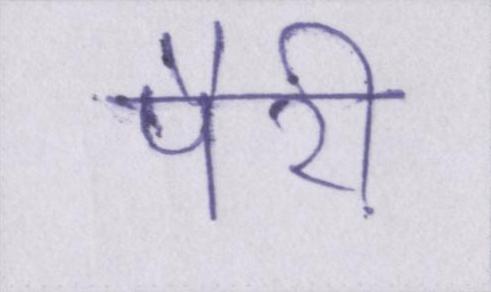 पैरी